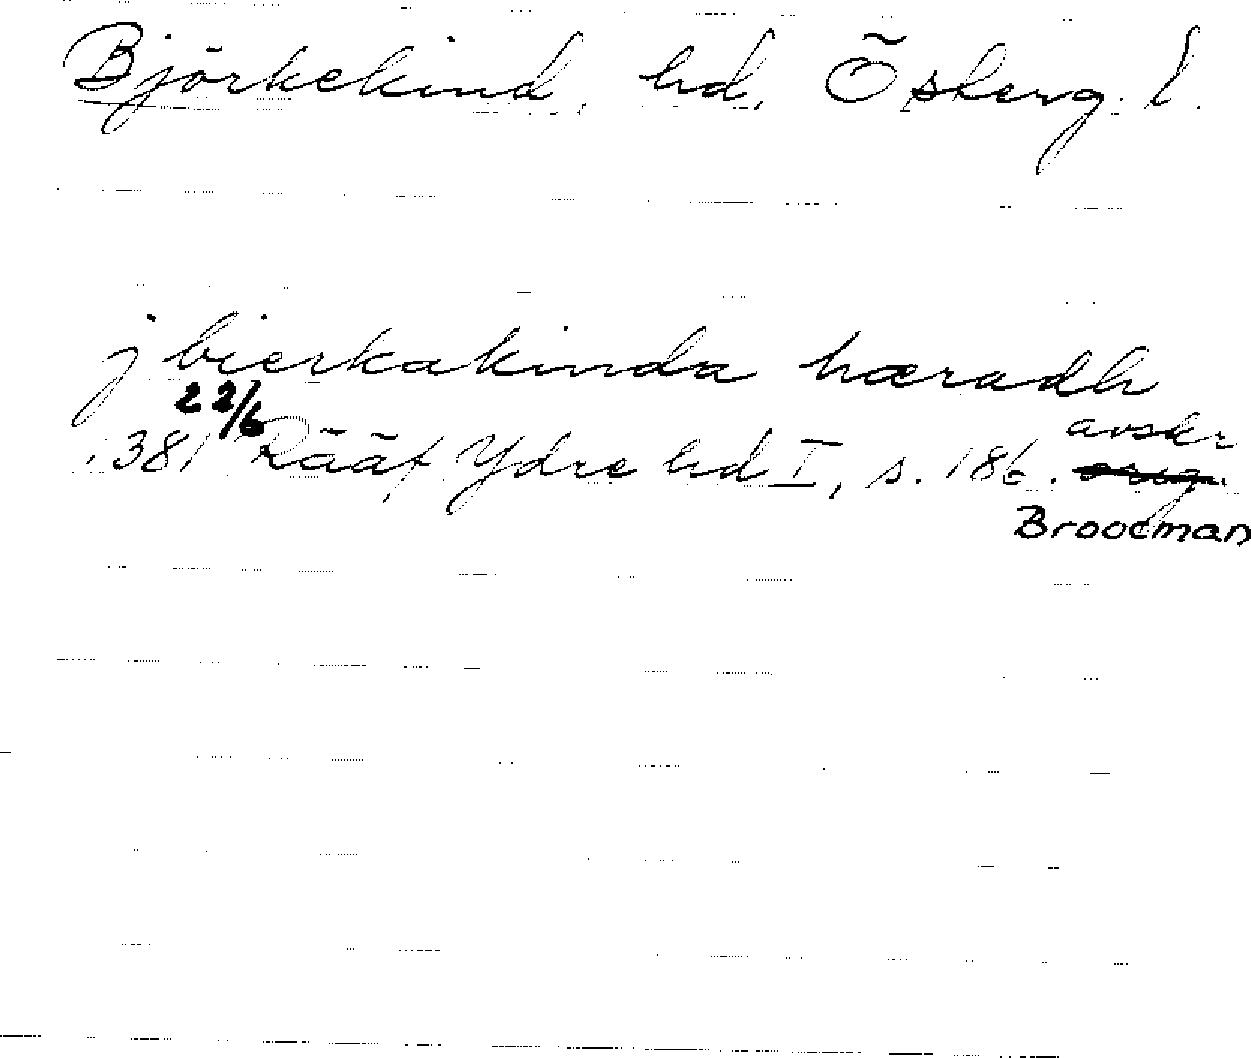 Björkekind, hd, Österg. l.
j bierkakinda hæradh
22/6
1381 Rääf Ydre hd I, s. 186. avskr
Broocman